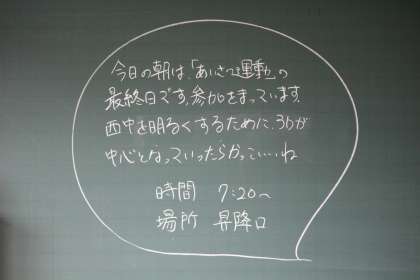 今日の朝は、「あいさつ運動」の
最終日です。参加をまっています。
西中を明るくするために、3bが
中心となっていったらかっこいいね
時間 7:20〜
場所 昇降口